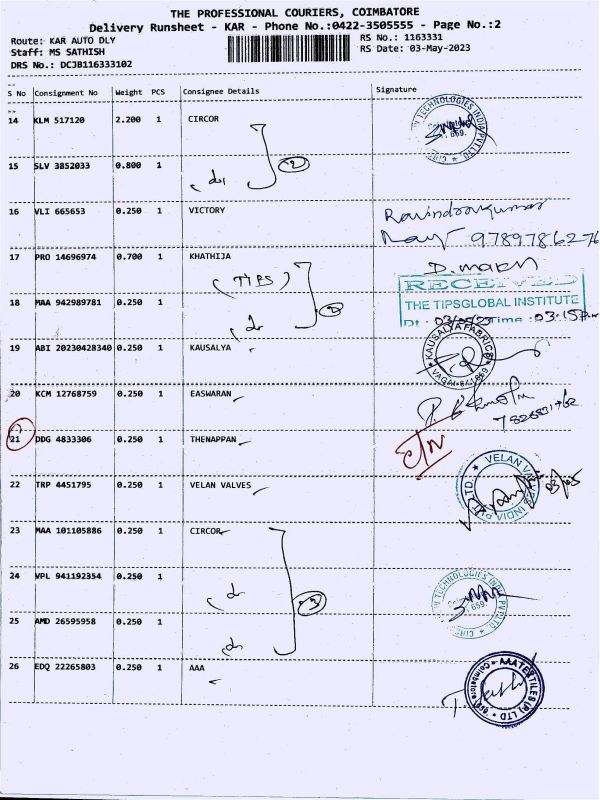 THE PROFESSIONAL COURIERS, COIMBATORE
Delivery Runsheet - KAR - Phone No.:0422-3505555 - Page No.:2
Route: KAR AUTO DLY RS No.: 1163331
Staff: MS SATHISH RS Date: 03-May-2023
DRS No.: DCJB116333102
S No Consignment No Weight PCS Consignee Details Signature
14 KLM 517120 2.200 1 CIRCOR
15 SLV 3852033 0.800 1
16 VLI 665653 0.250 1 VICTORY Ravindrakumar
9789786276
17 PRO 14696974 0.700 1 KHATHIJA
(TIPS)
RECEIVED
THE TIPSGLOBAL INSTITUTE
Dt : 03/05/23 Time : 03:15
18 MAA 942989781 0.250 1
19 ABI 20230428340 0.250 1 KAUSALYA KAUSALYA FABRICS
20 KCM 12768759 0.250 1 EASWARAN
21 DDG 4833306 0.250 1 THENAPPAN
22 TRP 4451795 0.250 1 VELAN VALVES VELAN VALVES INDIA
23 MAA 101105886 0.250 1 CIRCOR
24 VPL 941192354 0.250 1
25 AMD 26595958 0.250 1
26 EDQ 22265803 0.250 1 AAA AAA TEXTILES (P) LTD